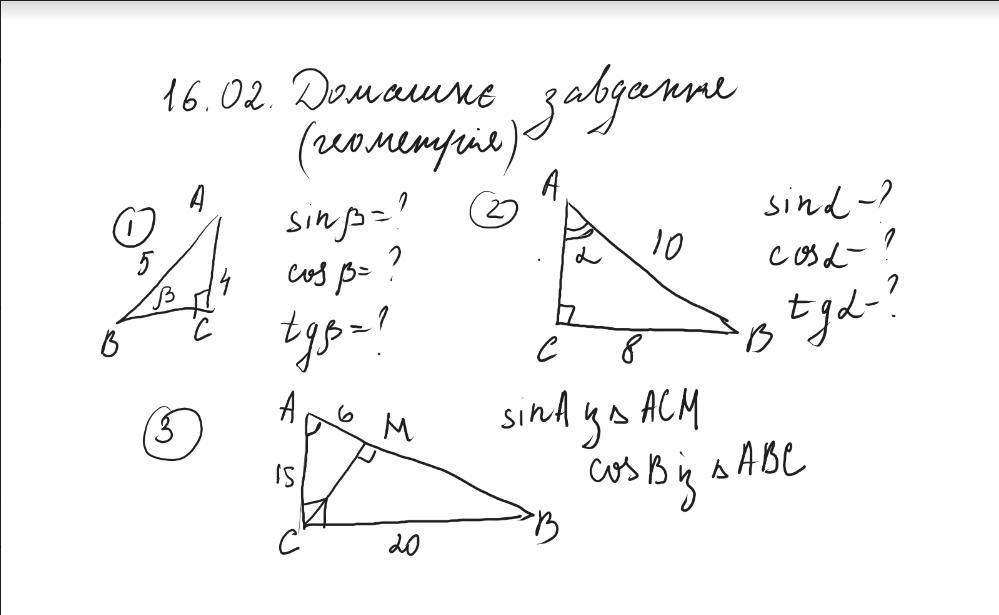 16.02. Домашнє завдання
(геометрія)
1
A
5
β
4
B
C
sinβ=?
cosβ=?
tgβ=?
2
A
α
10
C
8
B
sinα-?
cosα-?
tgα-?
3
A
6
M
15
C
20
B
sinA із ΔACM
cosB із ΔABC